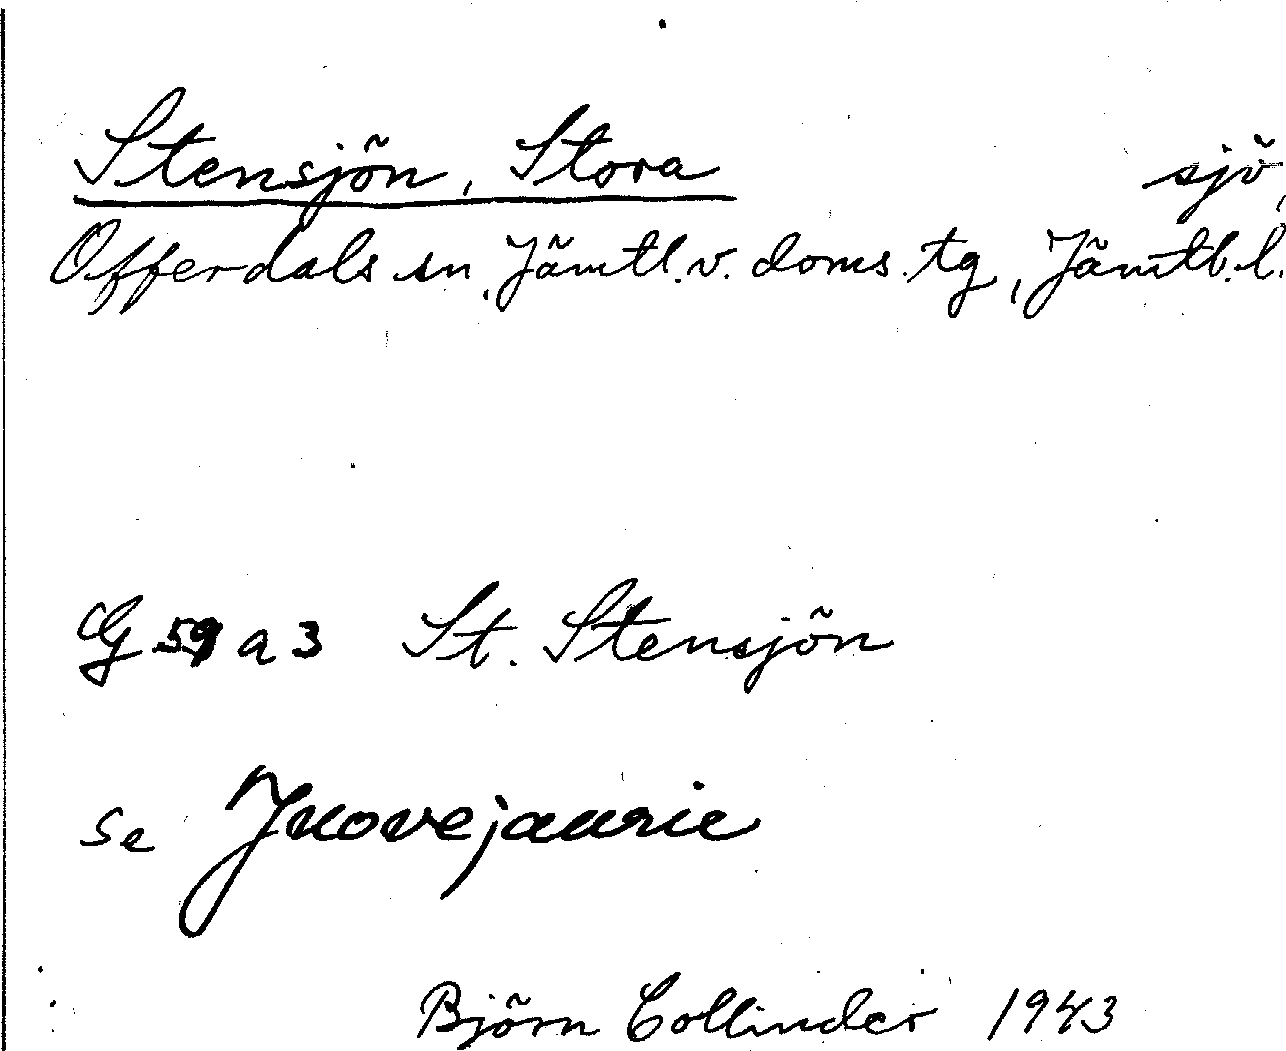 Stensjön, Stora sjö,
Offerdals sn, Jämtl.v.doms.tg, Jämtl.l.
G 59 a 3 St. Stensjön
se Juovejaurie
Björn Collinder 1943